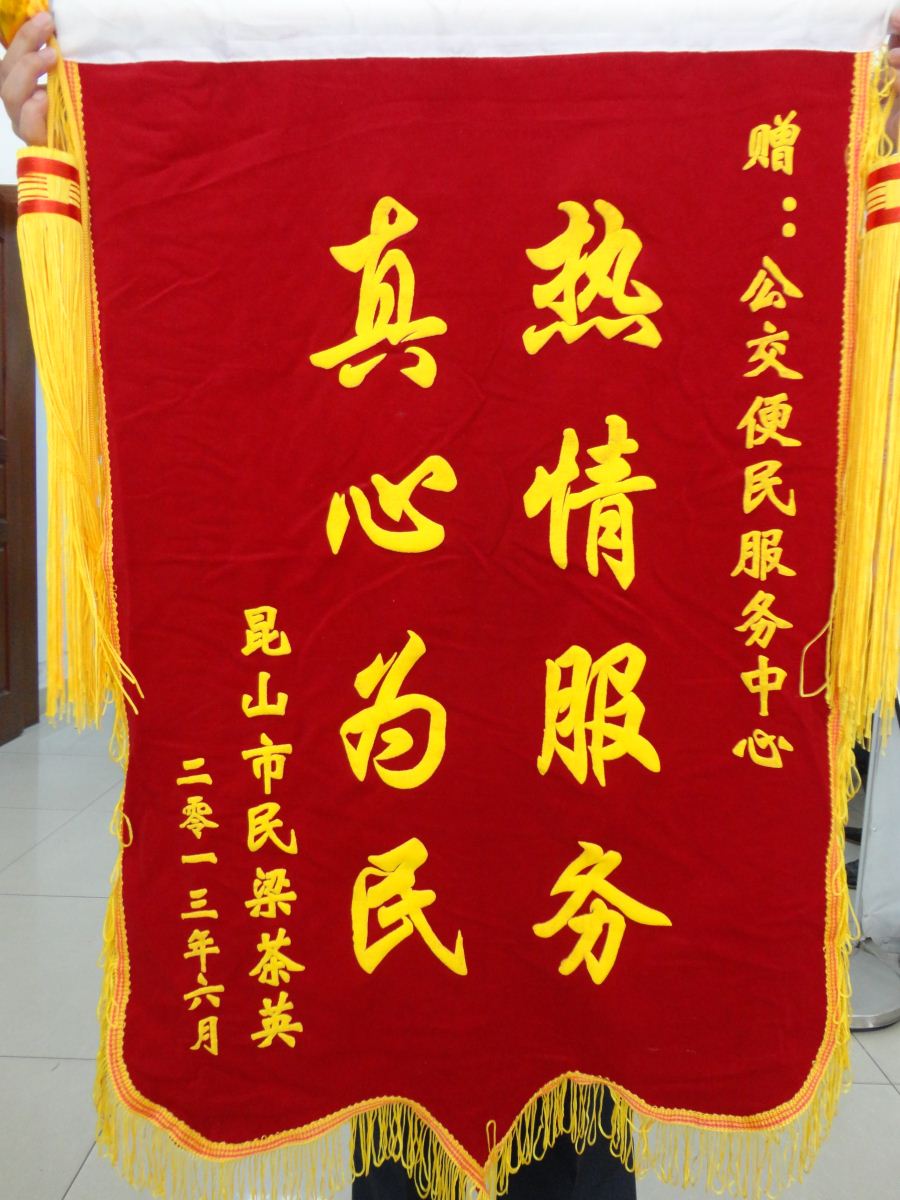 赠：公交便民服务中心
热情服务
真心为民
昆山市民梁茶英
二零一三年六月